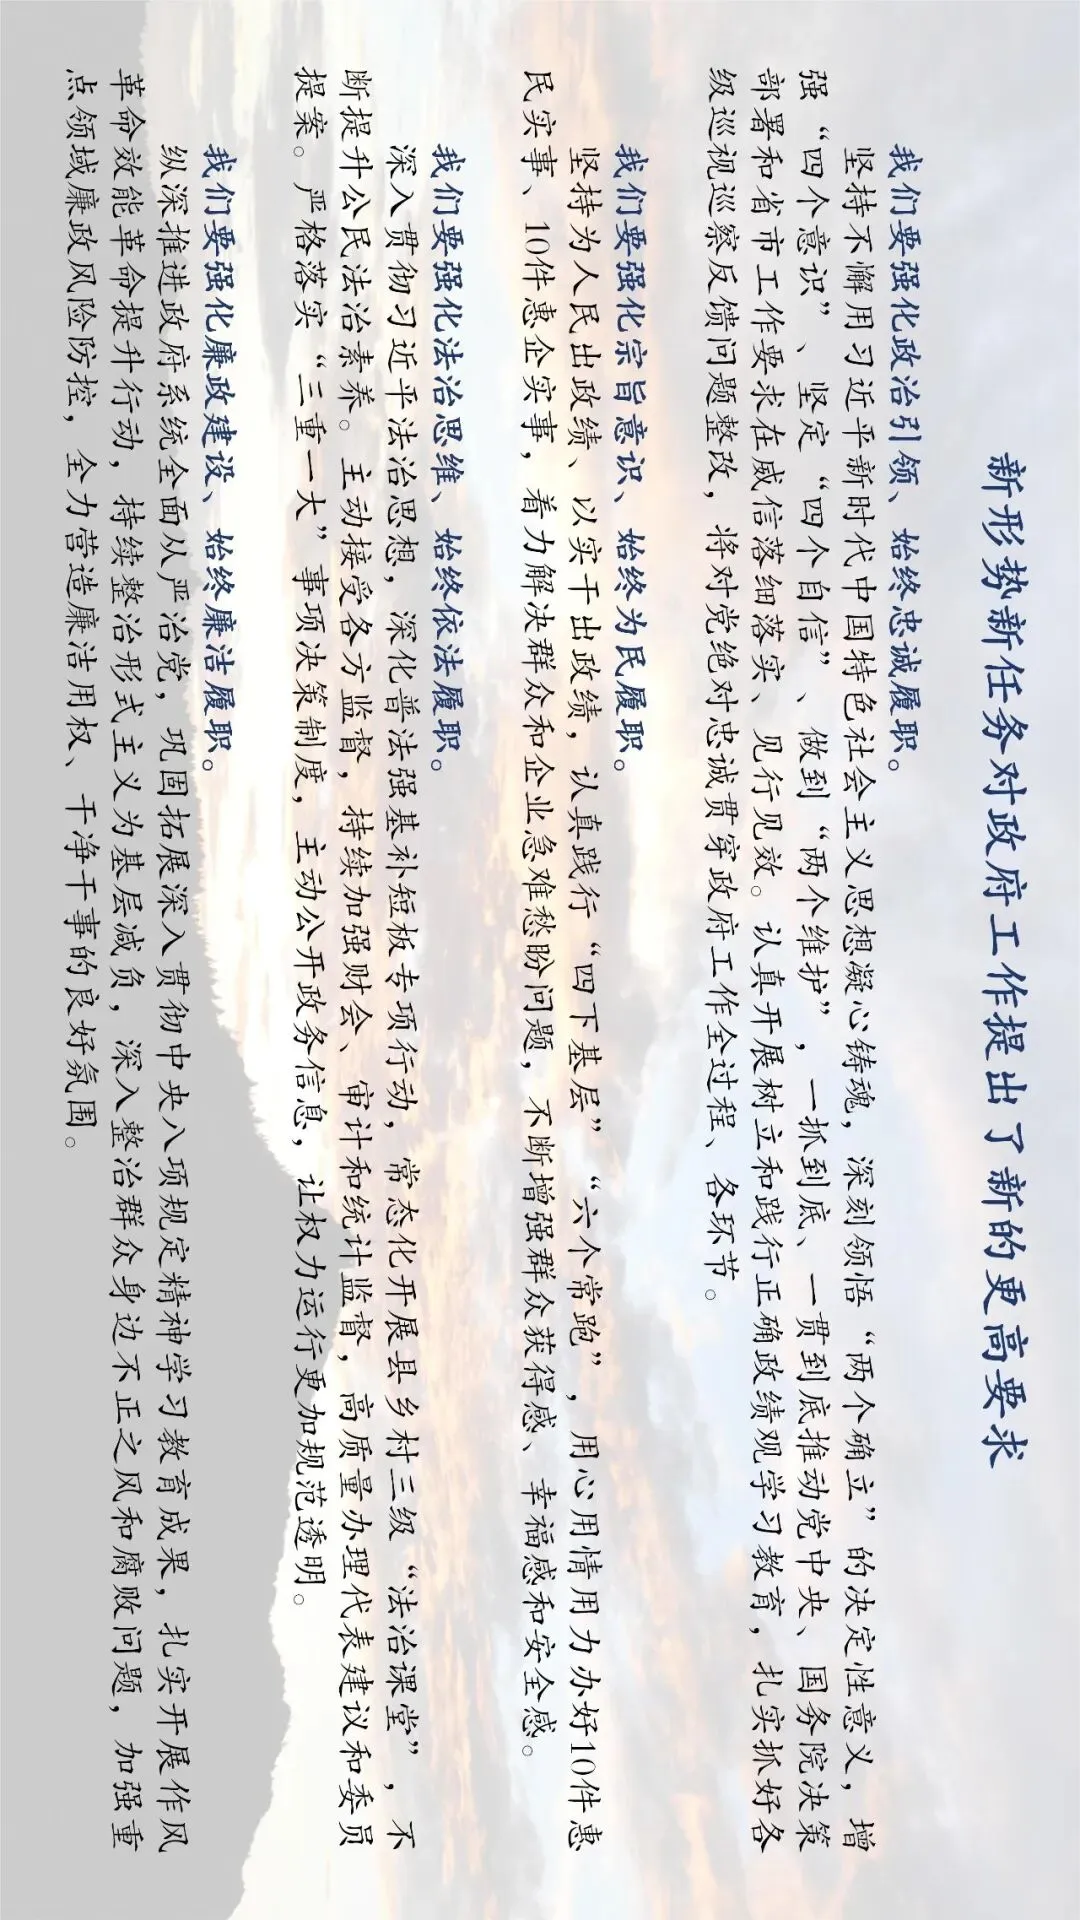 新形势新任务对政府工作提出了新的更高要求
我们要强化政治引领、始终忠诚履职。
坚持不懈用习近平新时代中国特色社会主义思想凝心铸魂，深刻领悟“两个确立”的决定性意义，增
强“四个意识”、坚定“四个自信”、做到“两个维护”，一抓到底、一贯到底推动党中央、国务院决策
部署和省市工作要求在威信落细落实、见行见效。认真开展树立和践行正确政绩观学习教育，扎实抓好各
级巡视巡察反馈问题整改，将对党绝对忠诚贯穿政府工作全过程、各环节。
我们要强化宗旨意识、始终为民履职。
坚持为人民出政绩、以实干出政绩，认真践行“四下基层”“六个常跑”，用心用情用力办好10件惠
民实事、10件惠企实事，着力解决群众和企业急难愁盼问题，不断增强群众获得感、幸福感和安全感。
我们要强化法治思维、始终依法履职。
深入贯彻习近平法治思想，深化普法强基补短板专项行动，常态化开展县乡村三级“法治课堂”，不
断提升公民法治素养。主动接受各方监督，持续加强财会、审计和统计监督，高质量办理代表建议和委员
提案。严格落实“三重一大”事项决策制度，主动公开政务信息，让权力运行更加规范透明。
我们要强化廉政建设、始终廉洁履职。
纵深推进政府系统全面从严治党，巩固拓展深入贯彻中央八项规定精神学习教育成果，扎实开展作风
革命效能革命提升行动，持续整治形式主义为基层减负，深入整治群众身边不正之风和腐败问题，加强重
点领域廉政风险防控，全力营造廉洁用权、干净干事的良好氛围。